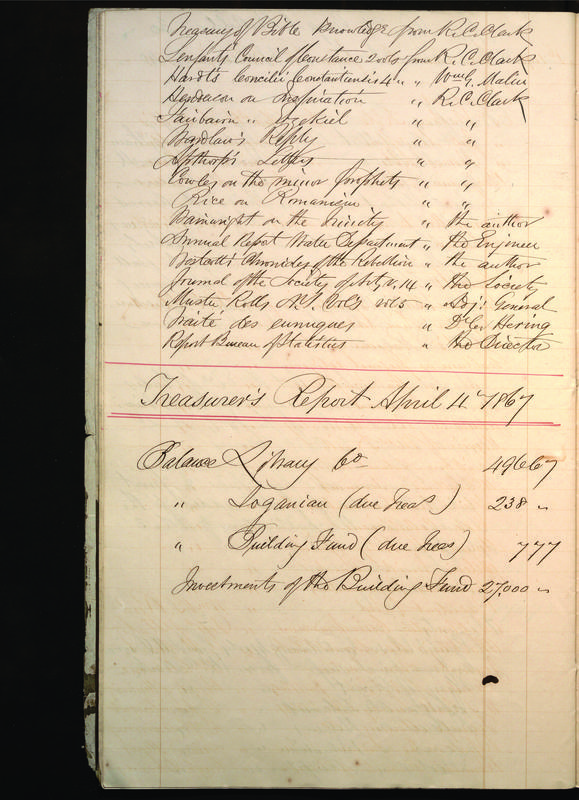 Treasury of Bible Knowledge from R. C. Clark
Lenfant's Council of Constance 2 vols from R. C. Clark
Hardt's Concilii Constantiensis 4 " " Wm G. Malin
Henderson on Inspiration " R. C. Clark
Fairbairn " Ezekiel " "
Wardlaw's Reply " "
Apthorp's Letters " "
Cowles on the minor prophets " "
Rice on Romanism " "
Wainwright on the " the author
Annual Report Water Department " the Engineer
Chronicles of the Rebellion " the author
Journal of the Society of Arts v. 14 " the Society
Muster Rolls N.Y. Vol's vol 5 " Adj: General
Traité des eunuques " Dr C. Hering
Report Bureau of Statistics " the Director
Treasurer's Report April 4" 1867
Balance Library Co 496 67
" Loganian (due Treas) 238 "
" Building Fund (due Treas) 777
Investments of the Building Fund 27,000 "